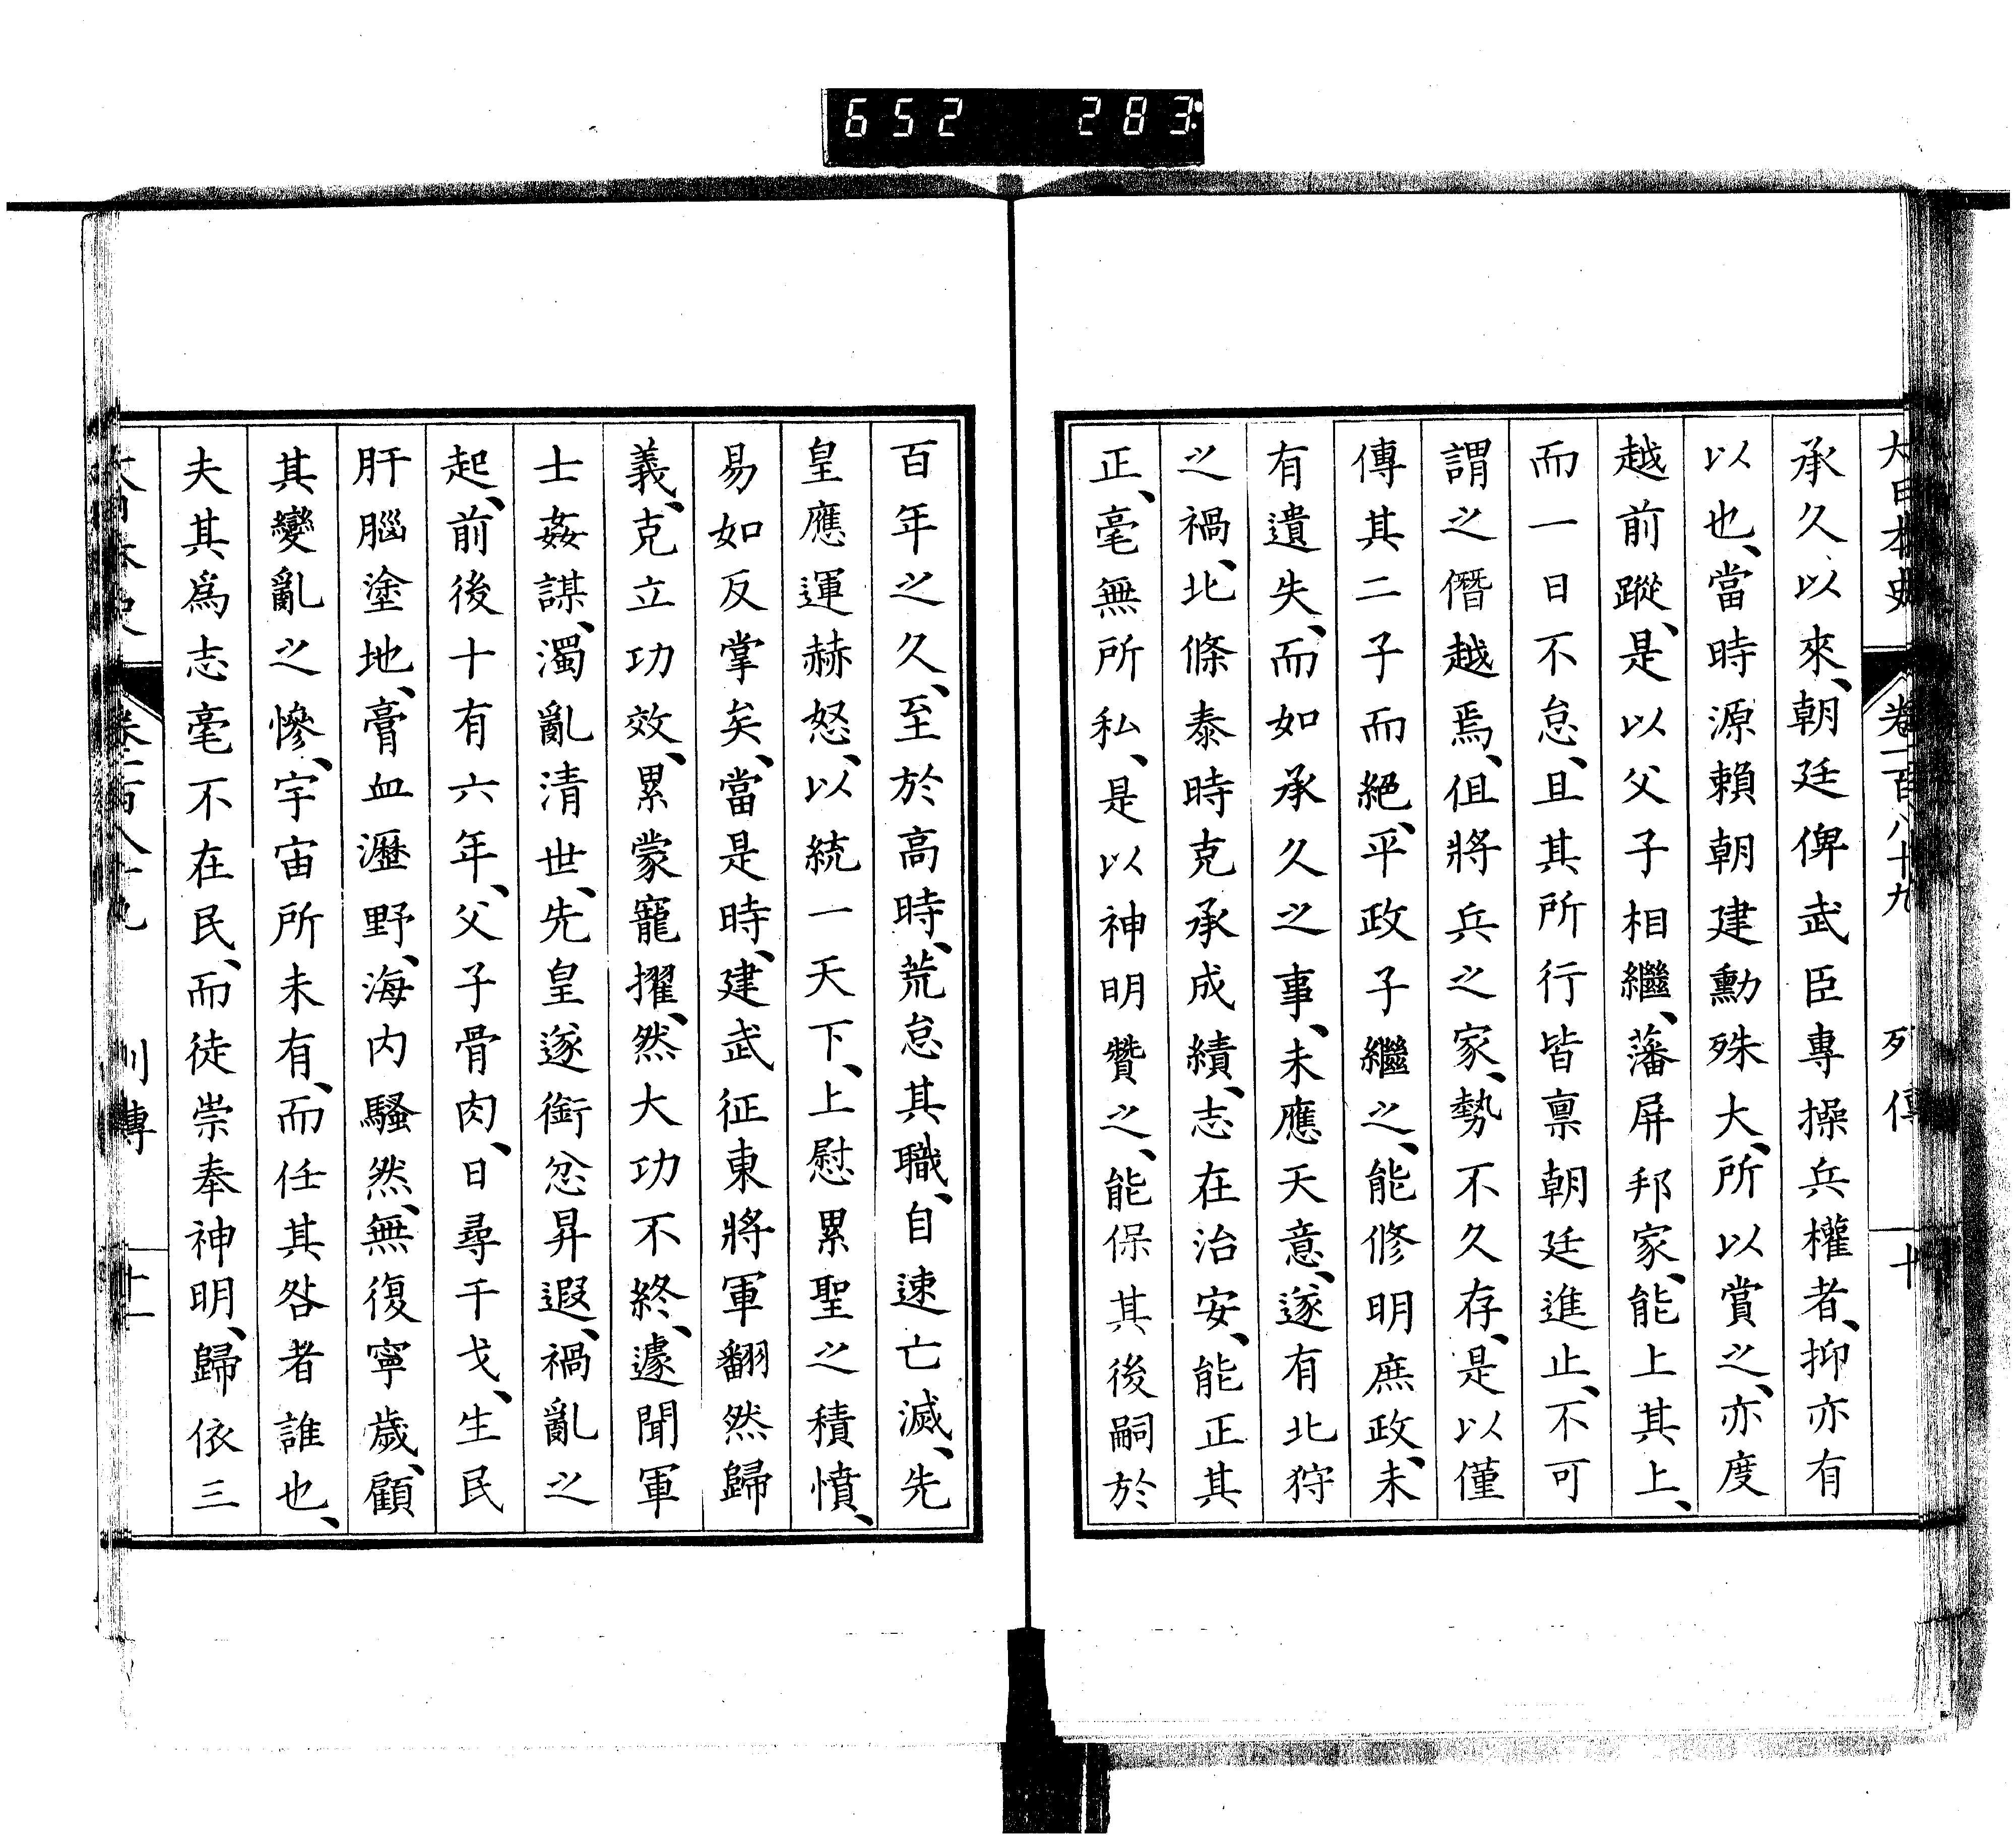 652 283
大日本史 卷一百八十九 列傳 十
承久以來、朝廷俾武臣專操兵權者、抑亦有
以也、當時源賴朝建勳殊大、所以賞之、亦度
越前蹤、是以父子相繼、藩屏邦家、能上其上、
而一日不怠、且其所行皆禀朝廷進止、不可
謂之僭越焉、伹將兵之家、勢不久存、是以僅
傳其二子而絕、平政子繼之、能修明庶政、未
有遺失、而如承久之事、未應天意、遂有北狩
之禍、北條泰時克承成績、志在治安、能正其
正、毫無所私、是以神明贊之、能保其後嗣於
百年之久、至於高時、荒怠其職、自速亡滅、先
皇應運赫怒、以統一天下、上慰累聖之積憤、
易如反掌矣、當是時、建武征東將軍翻然歸
義、克立功效、累蒙寵擢、然大功不終、遽聞軍
士姦謀、濁亂清世、先皇遂銜忿昇遐、禍亂之
起、前後十有六年、父子骨肉、日尋干戈、生民
肝腦塗地、膏血瀝野、海内騷然、無復寧歲、顧
其變亂之慘、宇宙所未有、而任其咎者誰也、
夫其爲志毫不在民、而徒崇奉神明、歸依三
大日本史 卷一百八十九 列傳 十一